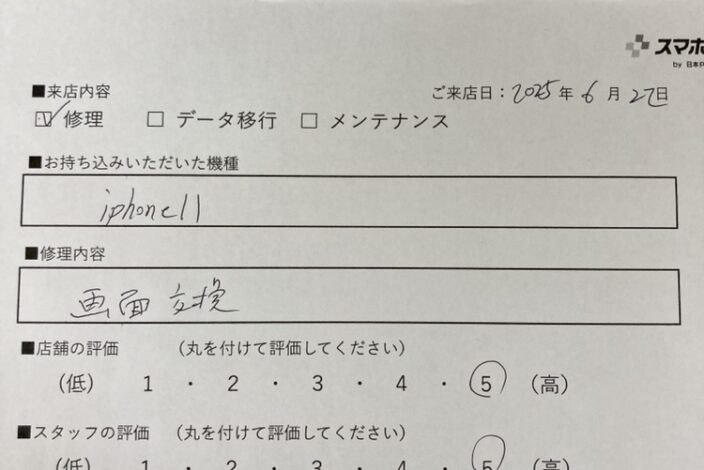 スマホ
by 日本P
■来店内容
ご来店日：2025年 6月 27日
☑ 修理 □ データ移行 □ メンテナンス
■お持ち込みいただいた機種
iphone11
■修理内容
画面交換
■店舗の評価 （丸を付けて評価してください）
（低） 1 ・ 2 ・ 3 ・ 4 ・ 5 （高）
■スタッフの評価 （丸を付けて評価してください）
（低） 1 ・ 2 ・ 3 ・ 4 ・ 5 （高）